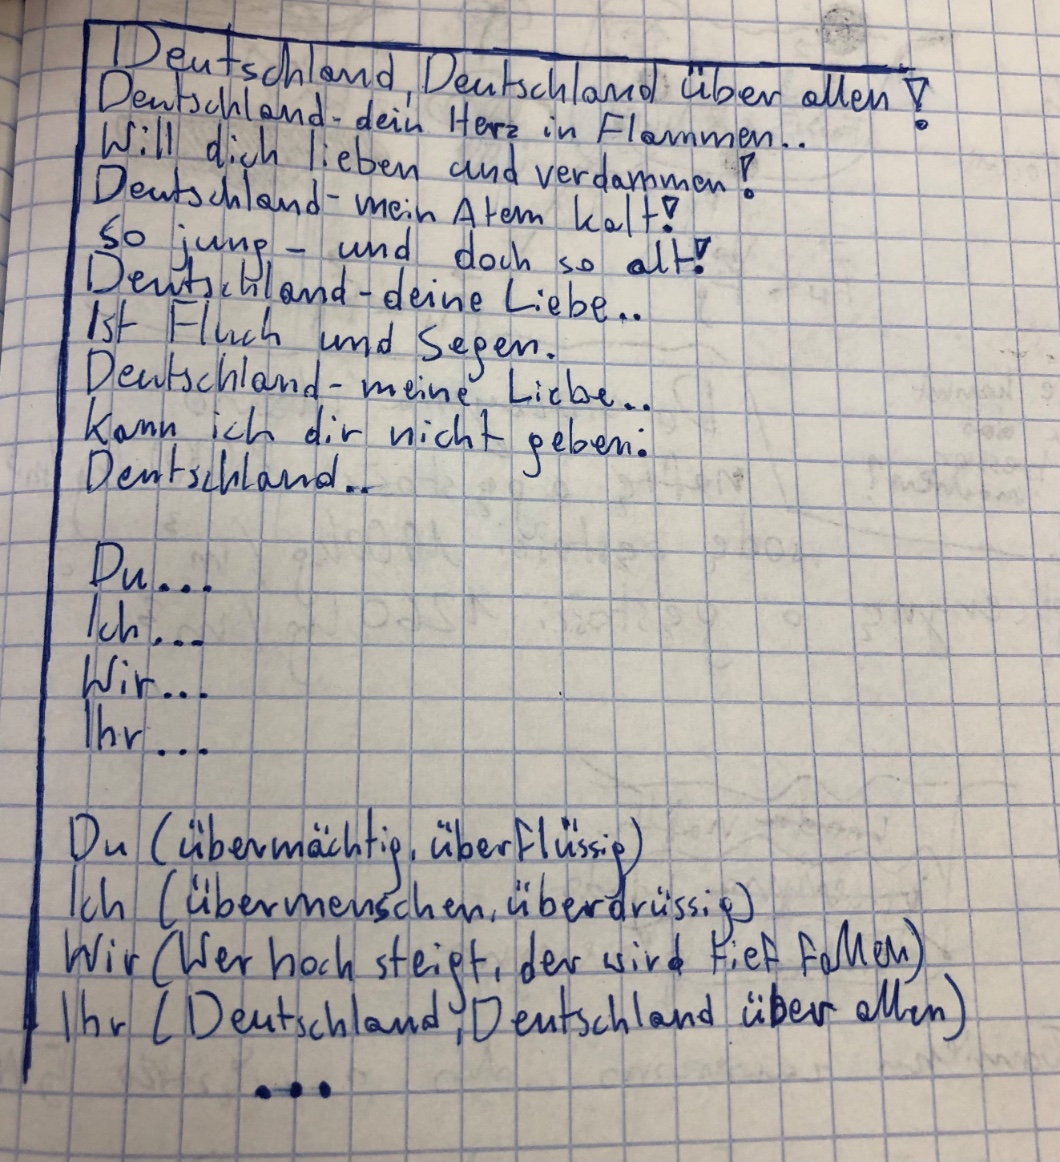 Deutschland, Deutschland über allen!
Deutschland - dein Herz in Flammen..
Will dich lieben und verdammen!
Deutschland - mein Atem kalt!
so jung - und doch so alt!
Deutschland - deine Liebe..
Ist Fluch und Segen.
Deutschland - meine Liebe..
kann ich dir nicht geben:
Deutschland..
Du...
Ich...
Wir...
Ihr...
Du (übermächtig, überflüssig)
Ich (übermenschen, überdrüssig)
Wir (Wer hoch steigt, der wird tief fallen)
Ihr (Deutschland, Deutschland über allen)
...